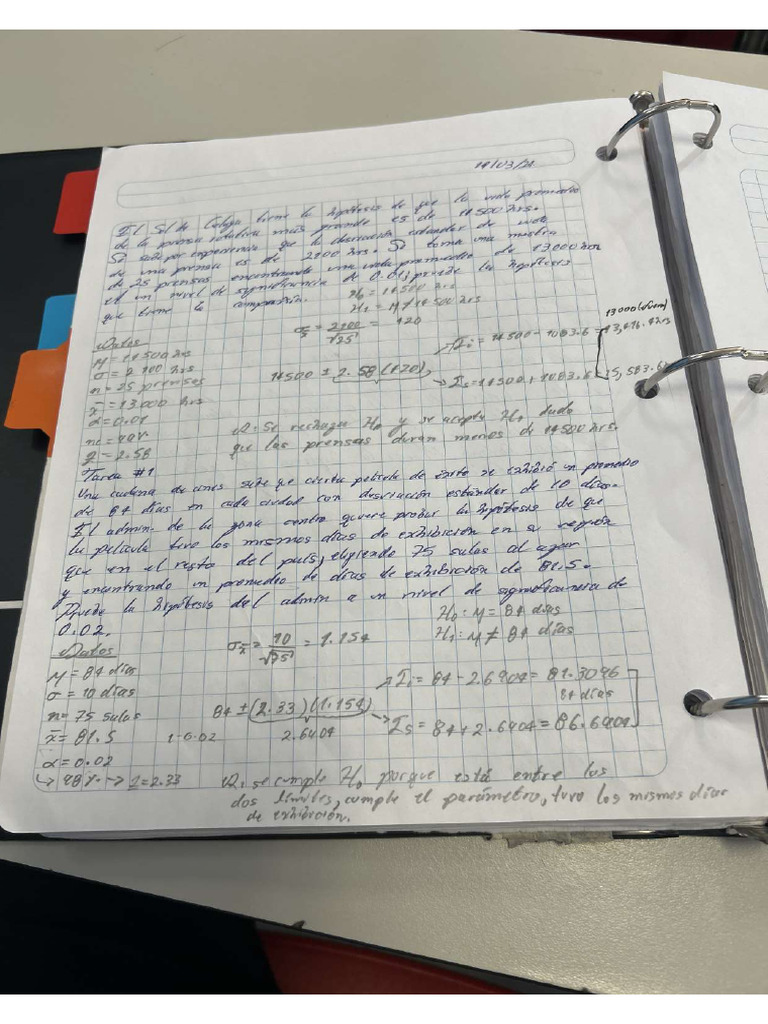 19/03/21
El Sol de Celaya tiene la hipótesis de que la vida promedio
de la prensa rotativa más grande es de 14500 hrs.
Se sabe por experiencia que la desviación estándar de
de una prensa es de 2100 hrs. Se toma una muestra
de 25 prensas encontrando una vida promedio de 13000 hrs
A un nivel de significancia de 0.01, pruebe la hipótesis
que tiene la compañía.
H₀ = 14500 hrs
H₁ = M ≠ 14500 hrs
Datos
M = 14500 hrs
σ = 2100 hrs
n = 25 prensas
x̄ = 13000 hrs
α = 0.01
nc = 99%
z = 2.58
σx̄ = 2100/√25 = 420
14500 ± 2.58(420)
→ Ii = 14500 - 1083.6 = 13,416.4 hrs
→ Is = 14500 + 1083.6 = 15,583.6
13000 (fuera)
R: Se rechaza H₀ y se acepta H₁ dado
que las prensas duran menos de 14500 hrs.
Tarea #1
Una cadena de cines sabe que cierta película de éxito se exhibió un promedio
de 84 días en cada ciudad con desviación estándar de 10 días.
El admin. de la zona centro quiere probar la hipótesis de que
la película tuvo los mismos días de exhibición en su región
que en el resto del país, eligiendo 75 salas al azar
y encontrando un promedio de días de exhibición de 81.5.
Pruebe la hipótesis del admin a un nivel de significancia de
0.02.
H₀: M = 84 días
H₁: M ≠ 84 días
Datos
M = 84 días
σ = 10 días
n = 75 salas
x̄ = 81.5
α = 0.02
→ 98% → z = 2.33
σx̄ = 10/√75 = 1.154
1-0.02
84 ± (2.33)(1.154)
2.6904
→ Ii = 84 - 2.6904 = 81.3096
84 días
→ Is = 84 + 2.6904 = 86.6904
R: se cumple H₀ porque está entre los
dos límites, cumple el parámetro, tuvo los mismos días
de exhibición.